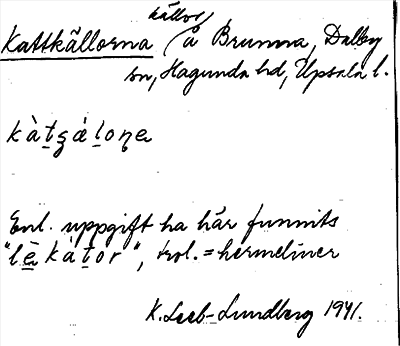 källor
Kattkällorna / å Brunna, Dalby
sn, Hagunda hd, Upsala l.
kàt̲ʒál̲oɳa
Enl. uppgift ha här funnits
"lè̲kàt̲or", trol. = hermeliner
K. Leeb-Lundberg 1941.